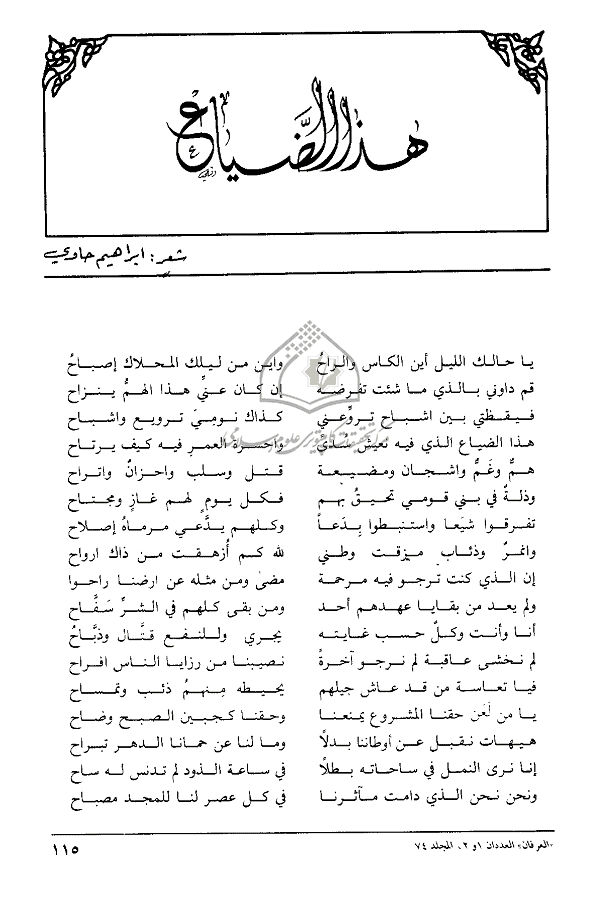 هذا الضياع
شعر: ابراهيم حاوي
يا حالك الليل أين الكاس والراحُ واين من ليلك المحلاك إصباحُ
قم داوني بالذي ما شئت تفرضه إن كان عنّي هذا الهمُّ ينزاح
فيقظتي بين اشباح تروّعني كذاك نوميَ ترويع واشباح
هذا الضياع الذي فيه نعيش سُدىً واحسرة العمرِ فيه كيف يرتاح
همٌّ وغمٌّ واشجان ومضيعة قتل وسلب واحزانٌ واتراح
وذلةٌ في بني قومي تحيقُ بهم فكل يومٍ لهم غازٍ ومجتاح
تفرقوا شيَعا واستنبطوا بِدَعاً وكلهم يدَّعي مرماهُ إصلاح
وانمرٌ وذئاب مزقت وطني لله كم أزهقت من ذاك ارواح
إن الذي كنت ترجو فيه مرحمة مضىٰ ومن مثله عن ارضنا راحوا
ولم يعد من بقايا عهدهم أحد ومن بقى كلهم في الشرّ سَفَّاح
أنا وأنت وكلٌ حسب غايته يجري وللنفع قتَّال وذبَّاحُ
لم نخشى عاقبة لم نرجو آخرةً نصيبنا من رزايا الناس افراح
فيا تعاسة من قد عاش جيلهم يحيطه مِنهمُ ذئب وتمساح
يا من لَعَن حقنا المشروع يمنعنا وحقنا كجبين الصبح وضاح
هيهات نقبل عن أوطاننا بدلًا وما لنا عن حمانا الدهر تبراح
إنا نرى النمل في ساحاته بطلًا في ساعة الذود لم تدنس له ساح
ونحن نحن الذي دامت مآثرنا في كل عصر لنا للمجد مصباح
«العرفان» العددان ١ و ٢، المجلد ٧٤ ١١٥